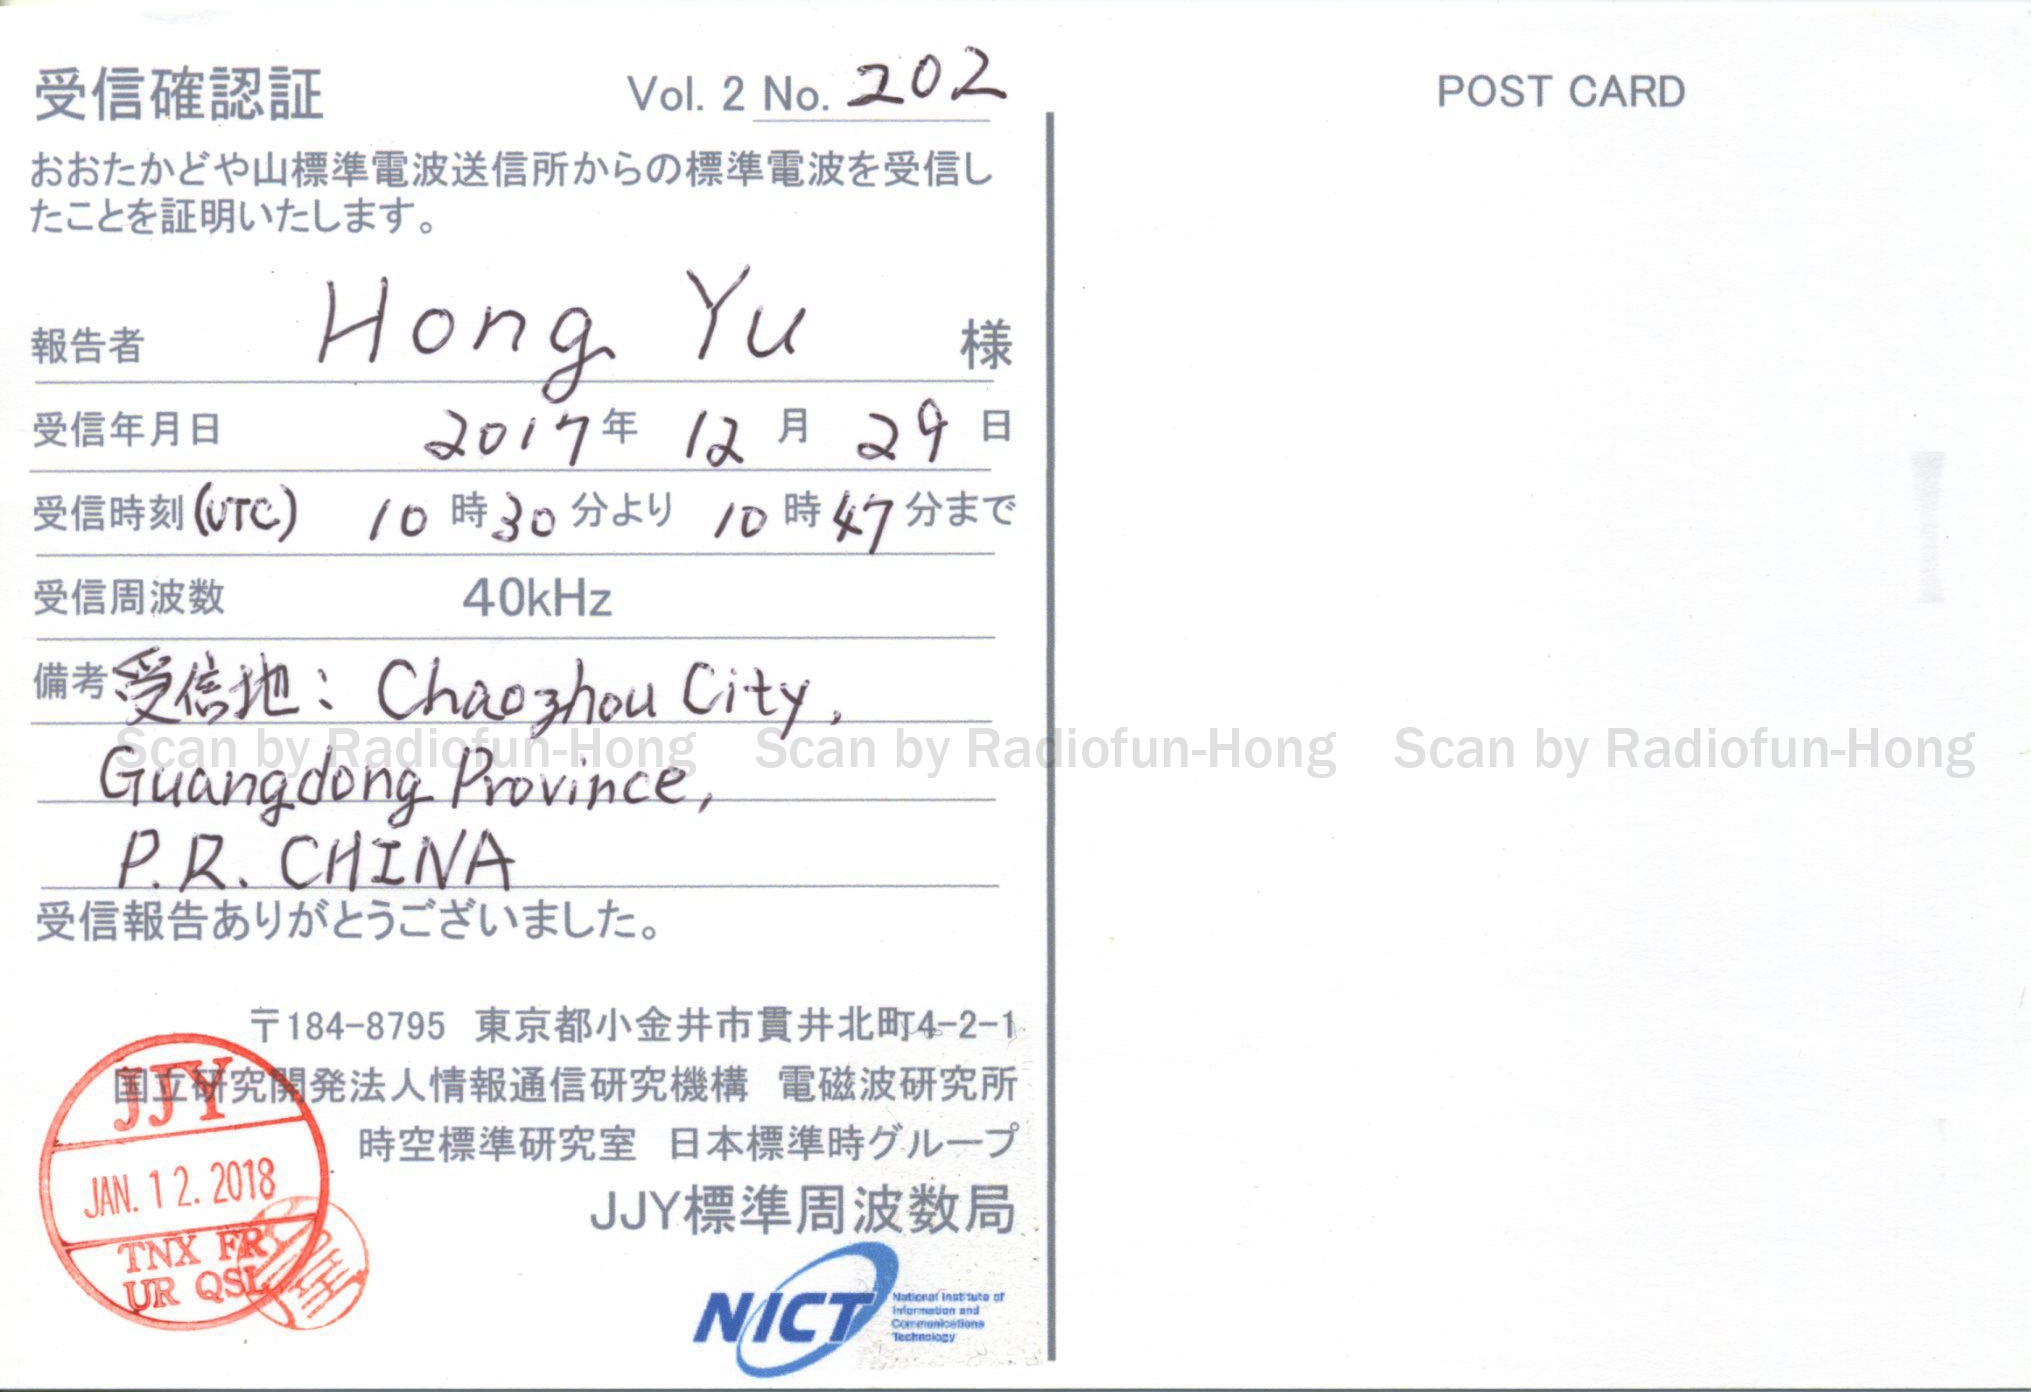 受信確認証
Vol. 2 No. 202
おおたかどや山標準電波送信所からの標準電波を受信し
たことを証明いたします。
報告者 Hong Yu 様
受信年月日 2017年 12月 29日
受信時刻(UTC) 10時30分より 10時47分まで
受信周波数 40kHz
備考 受信地: Chaozhou City,
Guangdong Province,
P.R. CHINA
受信報告ありがとうございました。
〒184-8795 東京都小金井市貫井北町4-2-1
国立研究開発法人情報通信研究機構 電磁波研究所
時空標準研究室 日本標準時グループ
JJY標準周波数局
JJY
JAN. 12. 2018
TNX FR
UR QSL
NICT
National Institute of
Information and
Communications
Technology
POST CARD
Scan by Radiofun-Hong Scan by Radiofun-Hong Scan by Radiofun-Hong